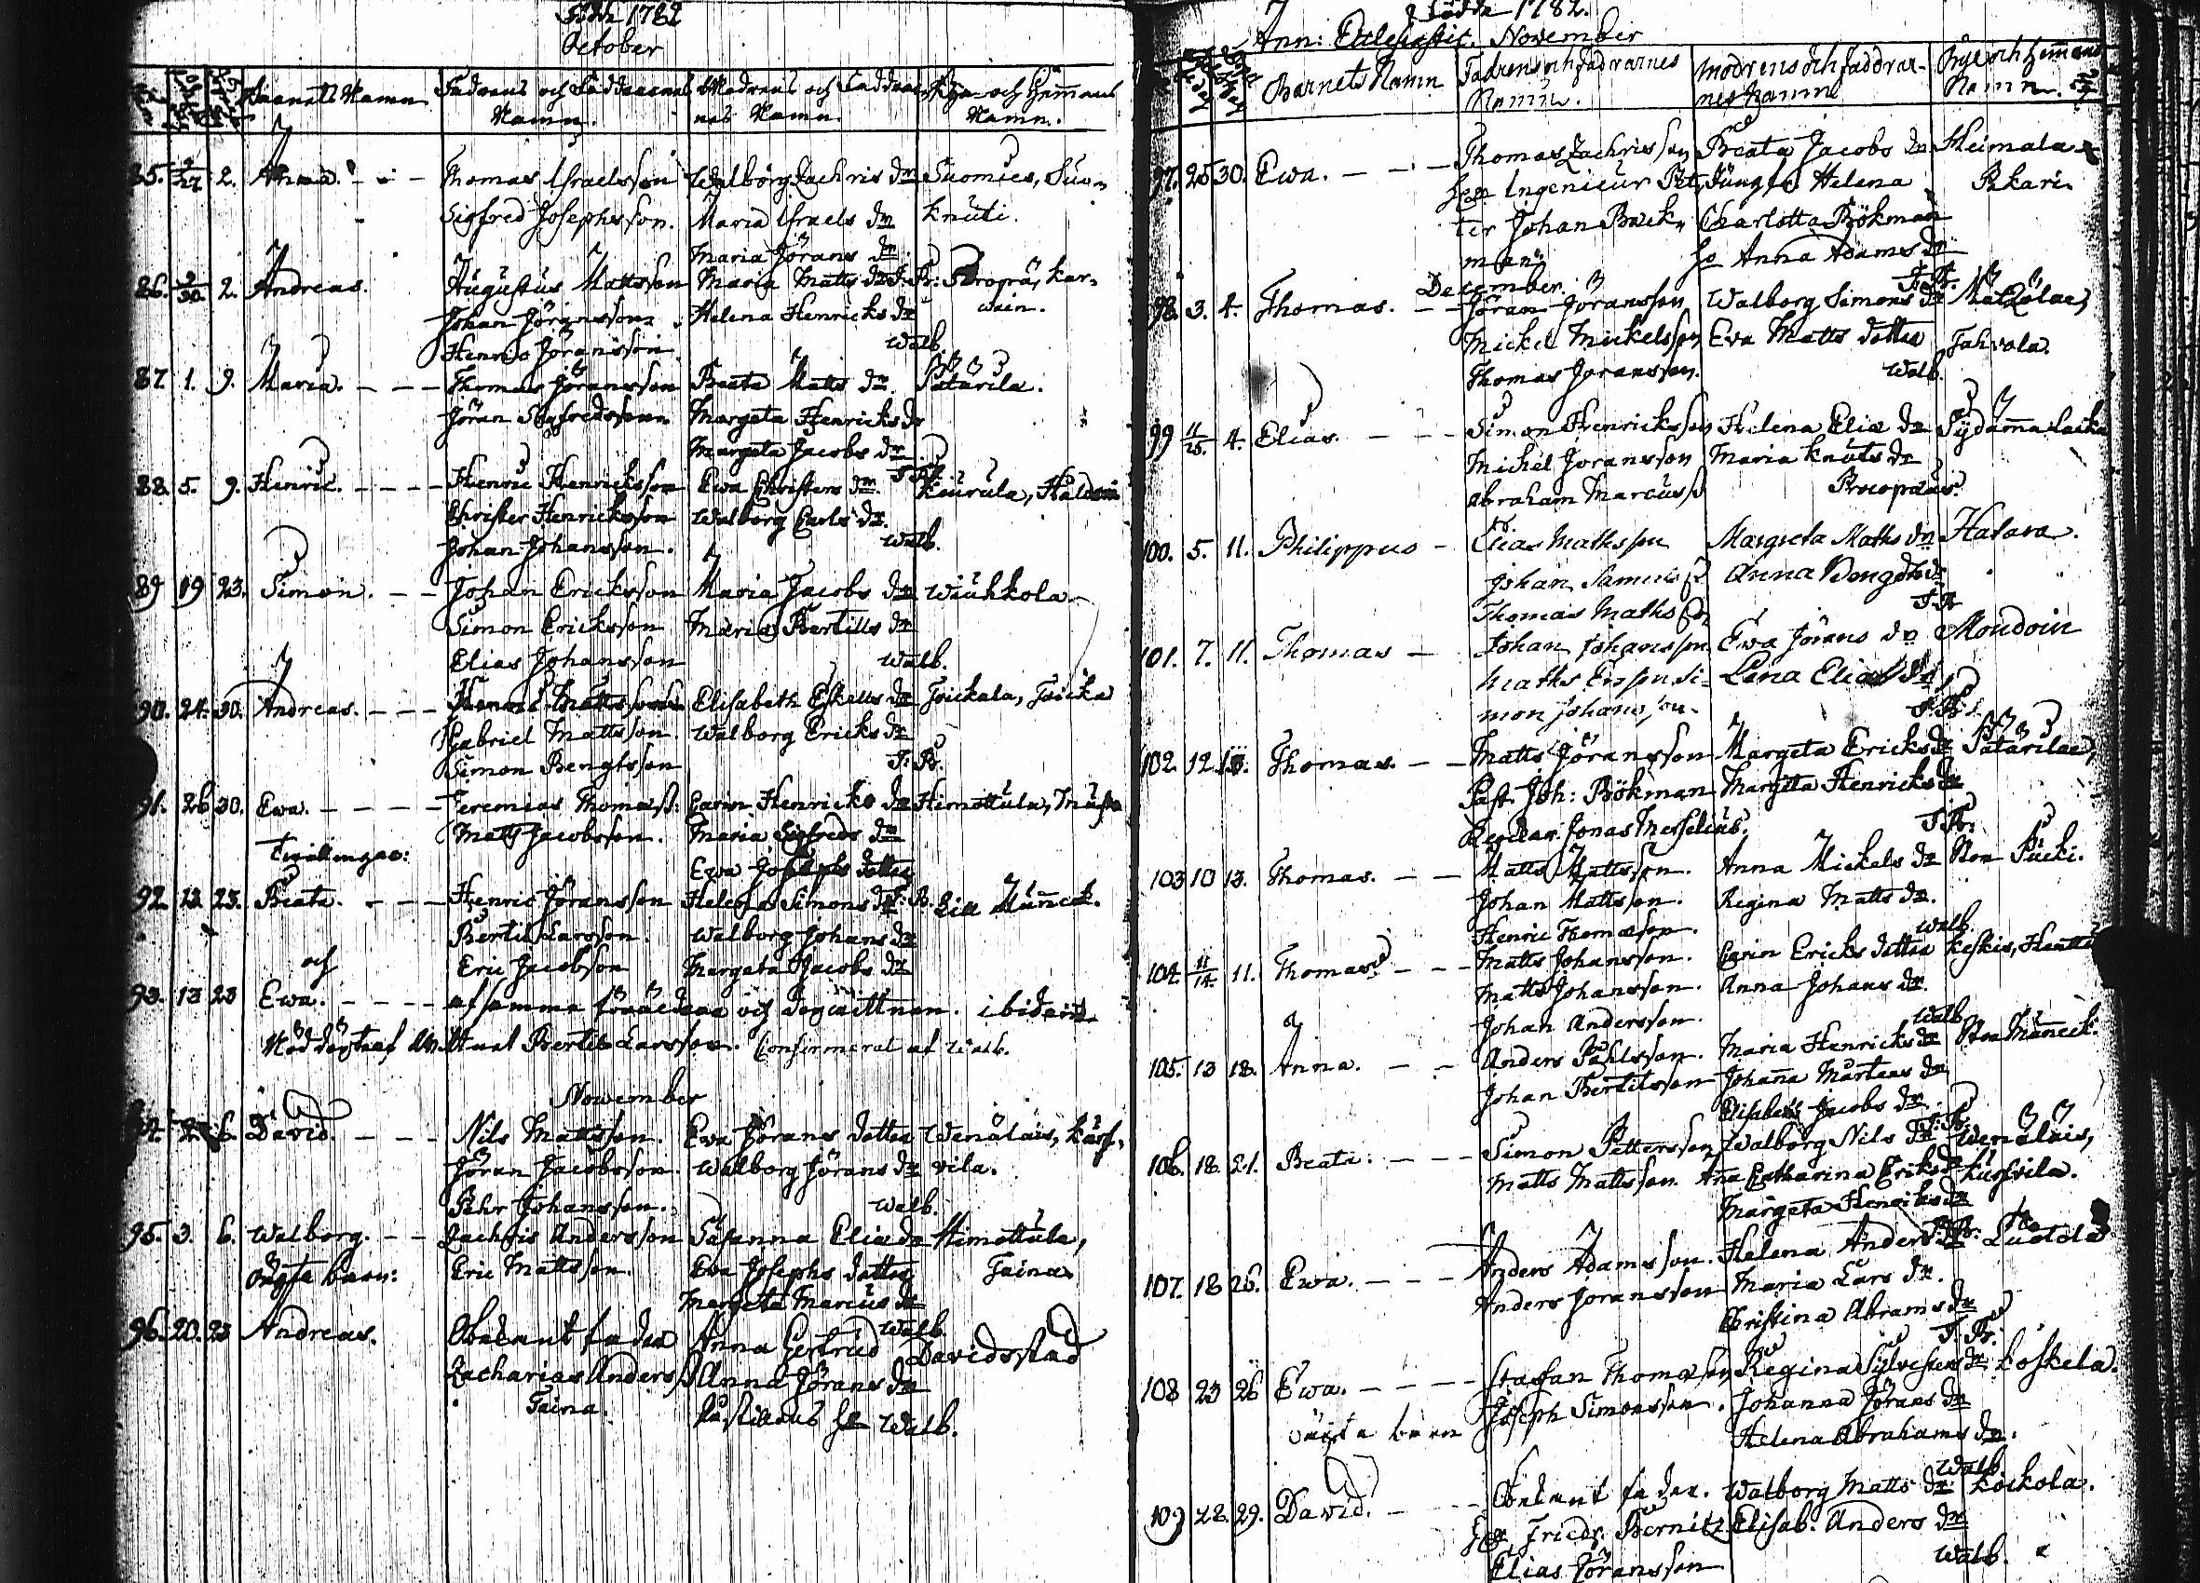 Födde 1782
October
Barnets Namn
Fadrens och Faddrarnas Namn.
Modrens och Faddrarnas Namn.
Byn och Hemmans Namn.
85. 9/27 2. Anna. Thomas Israelsson Walborg Zachris dr Suomies, Suo-
Sigfred Josephsson. Maria Israels dr knuti.
Maria Jörans dr
86. 9/30. 2. Andreas. Augustus Mattsson Maria Matts dr T. Pr:
Johan Jöransson. Helena Henricks dr
Henric Jöransson Walb.
87. 1. 9. Maria. Thomas Jöransson Beata Matts dr. Pätärila.
Jöran Sigfredsson Margeta Henricks dr
Margeta Jacobs dr
88. 5. 9. Henric. Henric Henricksson Ewa Christers dr. Keurula,
Christer Henricksson Walborg Carls dr.
Johan Johansson. Walb.
89 19 23. Simon. Johan Ericksson Maria Jacobs dr Wiuhkola
Simon Ericksson Maria Bertills dr
Elias Johansson Walb.
90. 24. 30. Andreas. Thomas Mattsson Elisabeth Eskells dr
Gabriel Mattsson. Walborg Ericks dr
Simon Bengtsson T. Pr.
91. 26 30. Ewa. Jeremias Thomass: Carin Henricks dr Himottula,
Matts Jacobsson. Maria Sigfreds dr
Ewa Josephs dotter
Twillingar:
92. 13. 23. Beata. Henric Jöransson Helena Simons dr T. P. Lill Munck.
Bertil Larsson. Walborg Johans dr
och Eric Jacobson Margeta Jacobs dr
93. 13 23 Ewa. af samma föräldrar och ibidem
Nöddöpt af Bertil Larsson. Confirmerat af Walb.
November
94. 2. 6. David. Nils Mattsson. Ewa Jörans dotter Wenäläis,
Jöran Jacobsson. Walborg Jörans dr vila.
Pehr Johansson. Walb.
95. 3. 6. Walborg. Zachris Andersson Susanna Eliæ dr Himottula,
oägta barn: Eric Mattsson. Eva Josephs dotter Taina.
Margeta Marcus dr
Walb.
96. 20. 23 Andreas. Obekant fader Anna Gertrud Davidsstad
Zacharias Anders ss Anna Jörans dr
Taina. hr Walb.
Födde 1782.
Ann: Ecclesiastic. November
Barnets Namn
Fadrens och faddrarnes Namn.
Modrens och faddrarnes namn
Byn och hemmans Namn.
97. 25 30. Ewa. Thomas Zachrisson Beata Jacobs dr Heimala
Herr Ingenieur Pet- Jungfr Helena Pekari.
ter Johan Back- Charlotta Bökman
man. hr Anna Adams dr
T. Pr.
December.
98. 3. 4. Thomas. Jöran Jöransson Walborg Simons dr
Mickel Mickelsson Eva Matts dotter Jahvala.
Thomas Joransson. Walb.
99 11/25. 4. Elias. Simon Henricksson Helena Eliæ dr Sydänmalacka
Michel Joransson Maria Knuts dr
Abraham Marcuss Procopæus.
100. 5. 11. Philippus Elias Mathsson Margreta Maths dr Hatava.
Johan Samuels ss Anna Bengds dr
Thomas Maths son T. Pr
101. 7. 11. Thomas Johan Johansson Ewa Jörans dr Moudoin
Maths Si- Lena Elias dr
mon Johansson. T. Pr.
102. 12 13. Thomas. Matts Jöransson Margeta Ericks dr Pätärilä
Past. Joh: Bökman Margeta Henricks dr
Jonas Meselius. T. Pr.
103 10 13. Thomas. Matts Mattsson. Anna Mickels dr Stor Pucki.
Johan Mattsson. Regina Matts dr.
Henric Thomasson. Walb.
104. 11/14. 11. Thomas. Matts Johansson. Carin Ericks dotter Keskis,
Matts Johansson. Anna Johans dr.
Johan Andersson. Walb
105. 13 18. Anna. Anders Påhlsson. Maria Henricks dr Stor Munck.
Johan Bertilsson Johanna Mårtens dr
Elisabet Jacobs dr.
T. Pr.
106. 18. 21. Beata. Simon Pettersson Walborg Nils dr Wenäläis,
Matts Mattsson. Ana Catharina Ericks dr
Margeta Henricks dr
T. Pr.
107. 18 26. Ewa. Anders Adamsson. Helena Anders dr Luotola
Anders Joransson Maria Lars dr.
Christina Abrams dr
T. Pr.
108 23 26 Ewa. Staffan Thomasson Regina Sylvesters dr Koskela.
oägta barn Joseph Simonsson. Johanna Jörans dr
Helena Abrahams dr.
Walb
109 28. 29. David. Obekant fader. Walborg Matts dr Kockola.
Hr Friedr. Bernitz. Elisab. Anders dr
Elias Jöransson Walb.